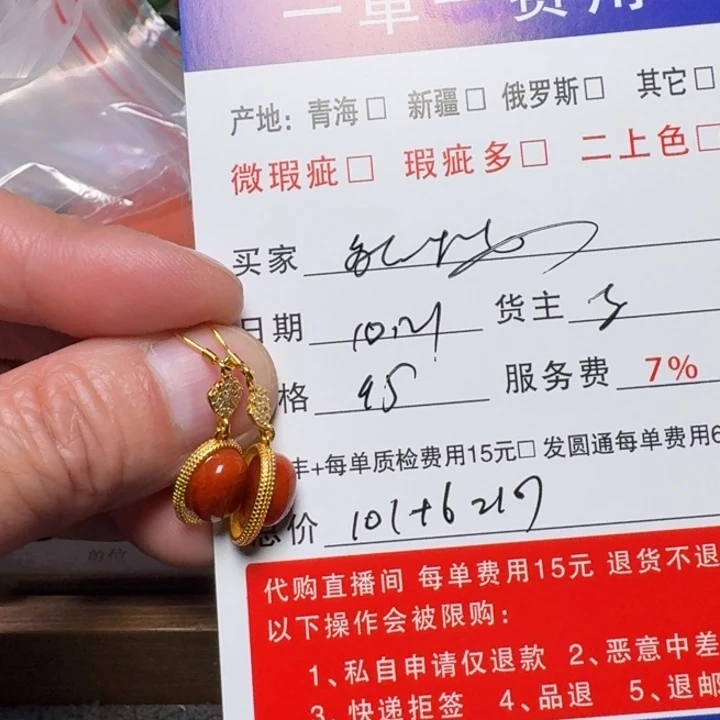 一单一费用
产地：青海□ 新疆□ 俄罗斯□ 其它□
微瑕疵□ 瑕疵多□ 二上色□
买家
日期 10.21 货主
格 95 服务费 7%
丰+每单质检费用15元□ 发圆通每单费用6
总价 101+6=107
代购直播间 每单费用15元 退货不退
以下操作会被限购：
1、私自申请仅退款 2、恶意中差
3、快递拒签 4、品退 5、退邮
单位